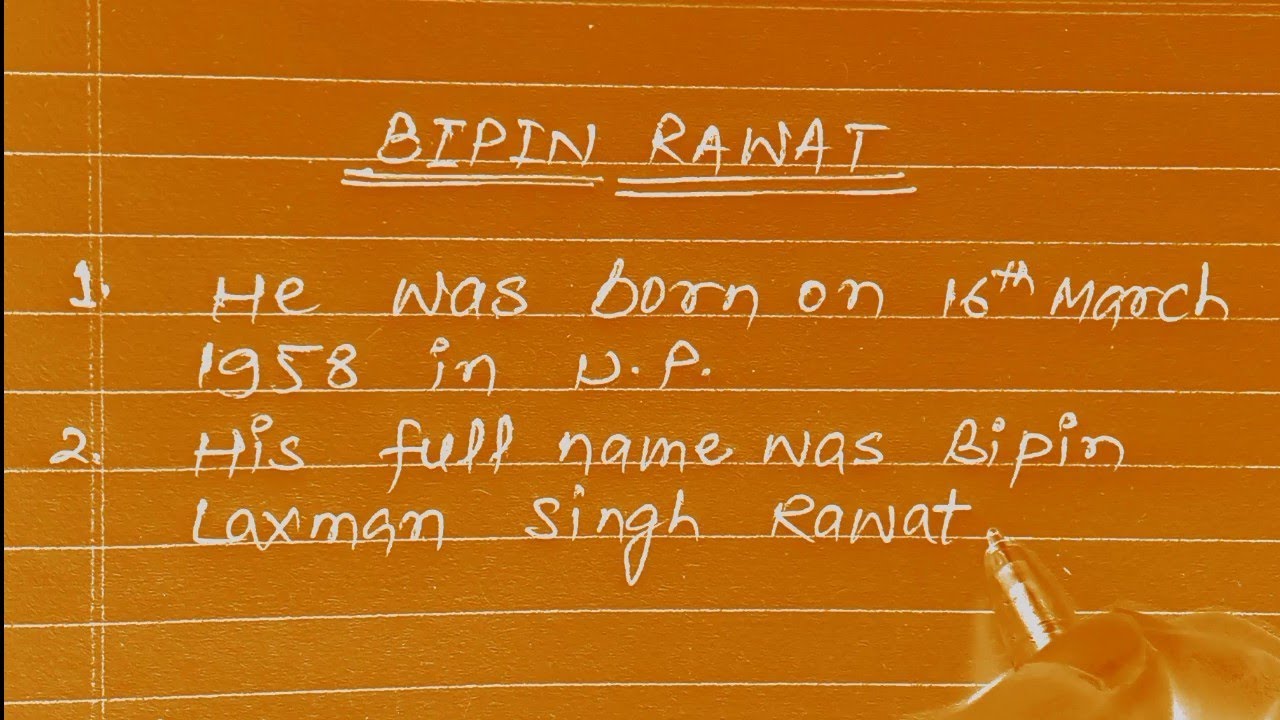 BIPIN RAWAT
1. He was born on 16th March
1958 in U.P.
2. His full name was Bipin
Laxman Singh Rawat